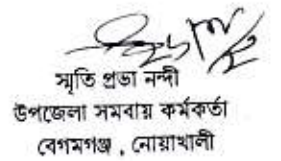 স্মৃতি প্রভা নন্দী
উপজেলা সমবায় কর্মকর্তা
বেগমগঞ্জ , নোয়াখালী